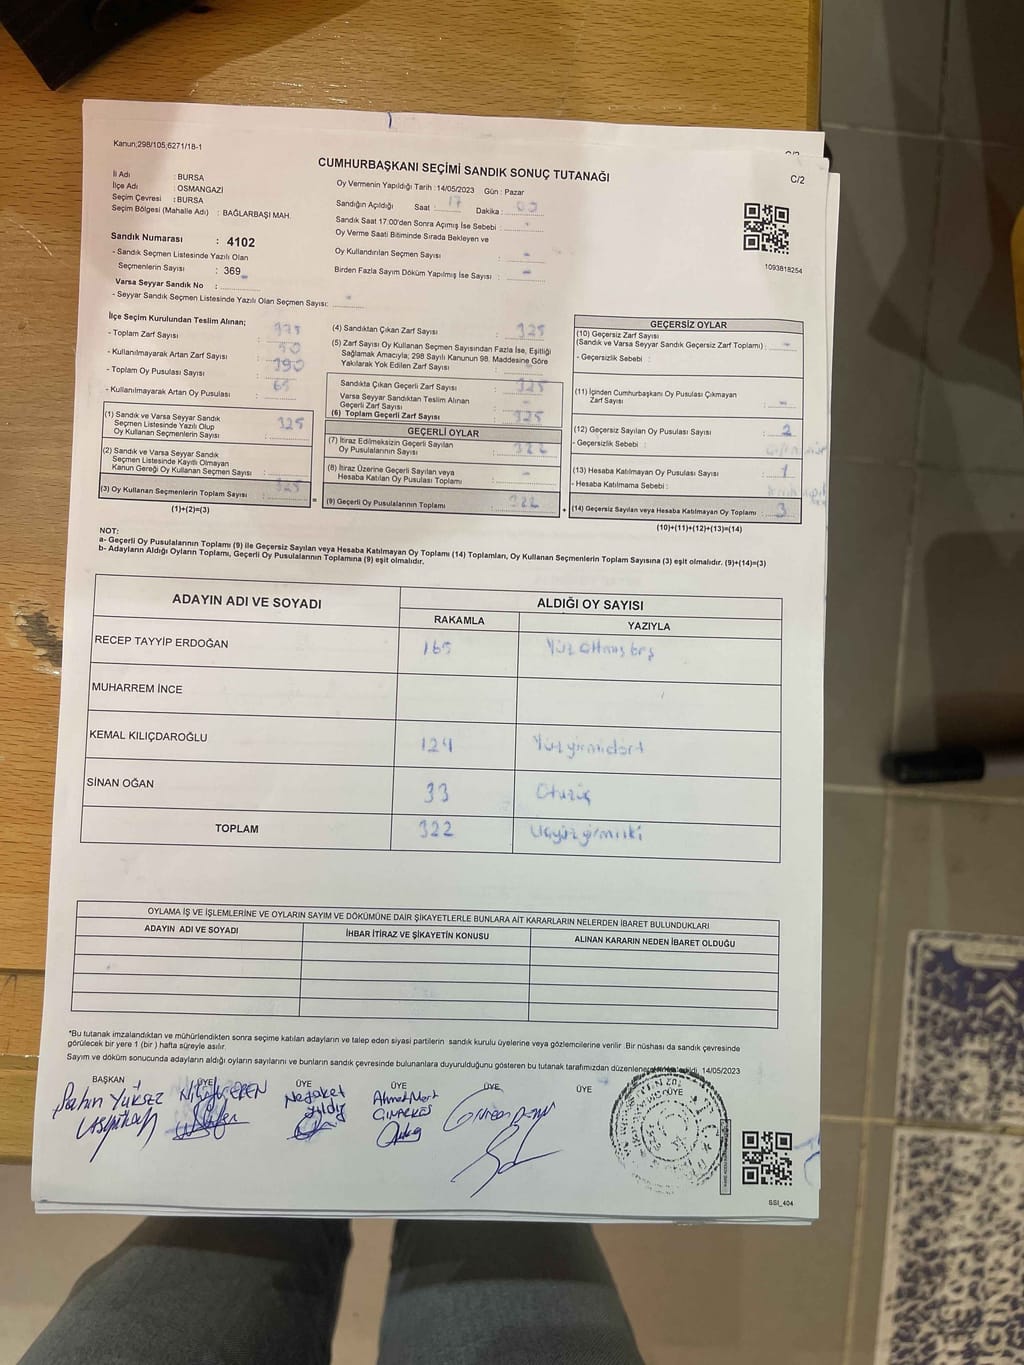 Kanun;298/105,6271/18-1
CUMHURBAŞKANI SEÇİMİ SANDIK SONUÇ TUTANAĞI
C/2
İl Adı : BURSA
İlçe Adı : OSMANGAZİ
Seçim Çevresi : BURSA
Seçim Bölgesi (Mahalle Adı) : BAĞLARBAŞI MAH.
Sandık Numarası : 4102
- Sandık Seçmen Listesinde Yazılı Olan
Seçmenlerin Sayısı : 369
Varsa Seyyar Sandık No :
- Seyyar Sandık Seçmen Listesinde Yazılı Olan Seçmen Sayısı:
Oy Vermenin Yapıldığı Tarih : 14/05/2023 Gün : Pazar
Sandığın Açıldığı Saat : 17 Dakika : 00
Sandık Saat 17:00'den Sonra Açımış İse Sebebi : -
Oy Verme Saati Bitiminde Sırada Bekleyen ve
Oy Kullandırılan Seçmen Sayısı : -
Birden Fazla Sayım Döküm Yapılmış İse Sayısı : -
1093818254
İlçe Seçim Kurulundan Teslim Alınan;
- Toplam Zarf Sayısı : 375
- Kullanılmayarak Artan Zarf Sayısı : 50
- Toplam Oy Pusulası Sayısı : 390
- Kullanılmayarak Artan Oy Pusulası : 65
(1) Sandık ve Varsa Seyyar Sandık
Seçmen Listesinde Yazılı Olup
Oy Kullanan Seçmenlerin Sayısı : 325
(2) Sandık ve Varsa Seyyar Sandık
Seçmen Listesinde Kayıtlı Olmayan
Kanun Gereği Oy Kullanan Seçmen Sayısı :
(3) Oy Kullanan Seçmenlerin Toplam Sayısı : 325
(1)+(2)=(3)
(4) Sandıktan Çıkan Zarf Sayısı : 325
(5) Zarf Sayısı Oy Kullanan Seçmen Sayısından Fazla İse, Eşitliği
Sağlamak Amacıyla; 298 Sayılı Kanunun 98. Maddesine Göre
Yakılarak Yok Edilen Zarf Sayısı :
Sandıkta Çıkan Geçerli Zarf Sayısı : 325
Varsa Seyyar Sandıktan Teslim Alınan
Geçerli Zarf Sayısı : -
(6) Toplam Geçerli Zarf Sayısı : 325
GEÇERLİ OYLAR
(7) İtiraz Edilmeksizin Geçerli Sayılan
Oy Pusulalarının Sayısı : 322
(8) İtiraz Üzerine Geçerli Sayılan veya
Hesaba Katılan Oy Pusulası Toplamı : -
(9) Geçerli Oy Pusulalarının Toplamı : 322
GEÇERSİZ OYLAR
(10) Geçersiz Zarf Sayısı
(Sandık ve Varsa Seyyar Sandık Geçersiz Zarf Toplamı) : -
- Geçersizlik Sebebi :
(11) İçinden Cumhurbaşkanı Oy Pusulası Çıkmayan
Zarf Sayısı : -
(12) Geçersiz Sayılan Oy Pusulası Sayısı : 2
- Geçersizlik Sebebi :
(13) Hesaba Katılmayan Oy Pusulası Sayısı : 1
- Hesaba Katılmama Sebebi :
(14) Geçersiz Sayılan veya Hesaba Katılmayan Oy Toplamı : 3
(10)+(11)+(12)+(13)=(14)
NOT:
a- Geçerli Oy Pusulalarının Toplamı (9) ile Geçersiz Sayılan veya Hesaba Katılmayan Oy Toplamı (14) Toplamları, Oy Kullanan Seçmenlerin Toplam Sayısına (3) eşit olmalıdır. (9)+(14)=(3)
b- Adayların Aldığı Oyların Toplamı, Geçerli Oy Pusulalarının Toplamına (9) eşit olmalıdır.
ADAYIN ADI VE SOYADI
ALDIĞI OY SAYISI
RAKAMLA YAZIYLA
RECEP TAYYİP ERDOĞAN 165 Yüz altmış beş
MUHARREM İNCE
KEMAL KILIÇDAROĞLU 124 Yüz yirmidört
SİNAN OĞAN 33 Otuzüç
TOPLAM 322 Üçyüz yirmiiki
OYLAMA İŞ VE İŞLEMLERİNE VE OYLARIN SAYIM VE DÖKÜMÜNE DAİR ŞİKAYETLERLE BUNLARA AİT KARARLARIN NELERDEN İBARET BULUNDUKLARI
ADAYIN ADI VE SOYADI İHBAR İTİRAZ VE ŞİKAYETİN KONUSU ALINAN KARARIN NEDEN İBARET OLDUĞU
*Bu tutanak imzalandıktan ve mühürlendikten sonra seçime katılan adayların ve talep eden siyasi partilerin sandık kurulu üyelerine veya gözlemcilerine verilir .Bir nüshası da sandık çevresinde
görülecek bir yere 1 (bir ) hafta süreyle asılır.
Sayım ve döküm sonucunda adayların aldığı oyların sayılarını ve bunların sandık çevresinde bulunanlara duyurulduğunu gösteren bu tutanak tarafımızdan 14/05/2023
BAŞKAN ÜYE ÜYE ÜYE ÜYE ÜYE
Şahin YÜKSEL
Nezaket
Yıldız
Ahmet Mert
ÇINARKEŞ
SSI_404